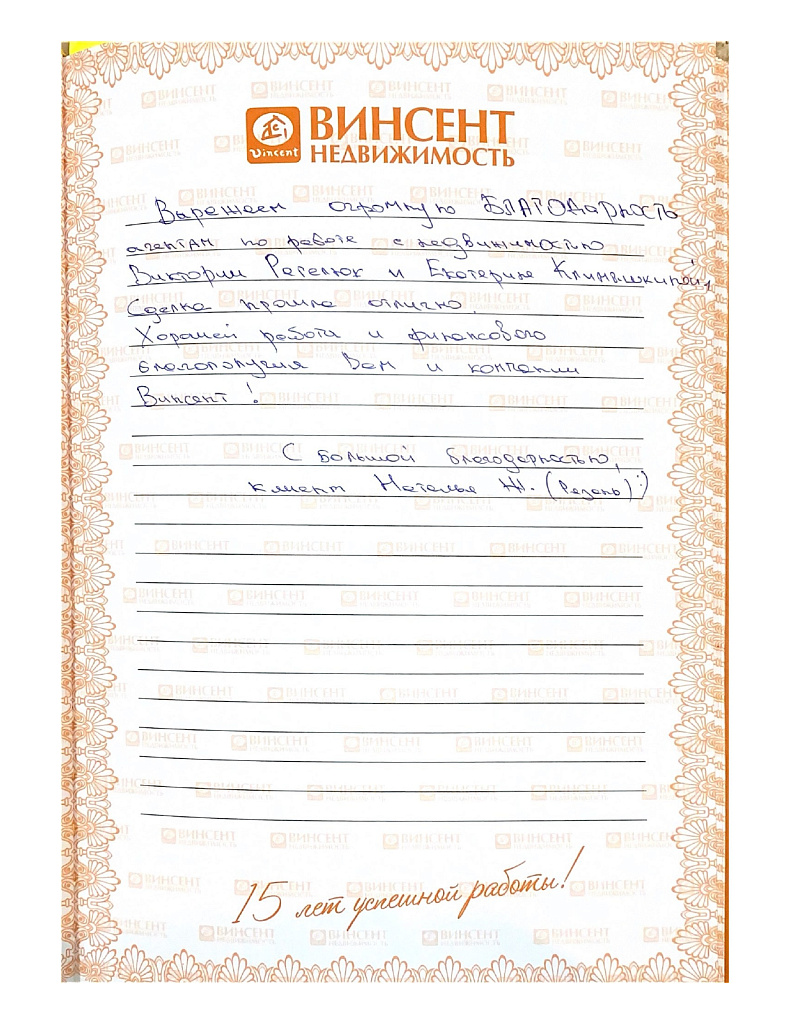 Vincent
ВИНСЕНТ
НЕДВИЖИМОСТЬ
Выражаем огромную БЛАГОдарность
агентам по работе с недвижимостью
Виктории Регелюк и Екатерине Клинышкиной,
Сделка прошла отлично.
Хорошей работы и финансового
благополучия Вам и компании
Винсент!
С большой благодарностью,
клиент Наталья Ж. (Рязань) :)
15 лет успешной работы!